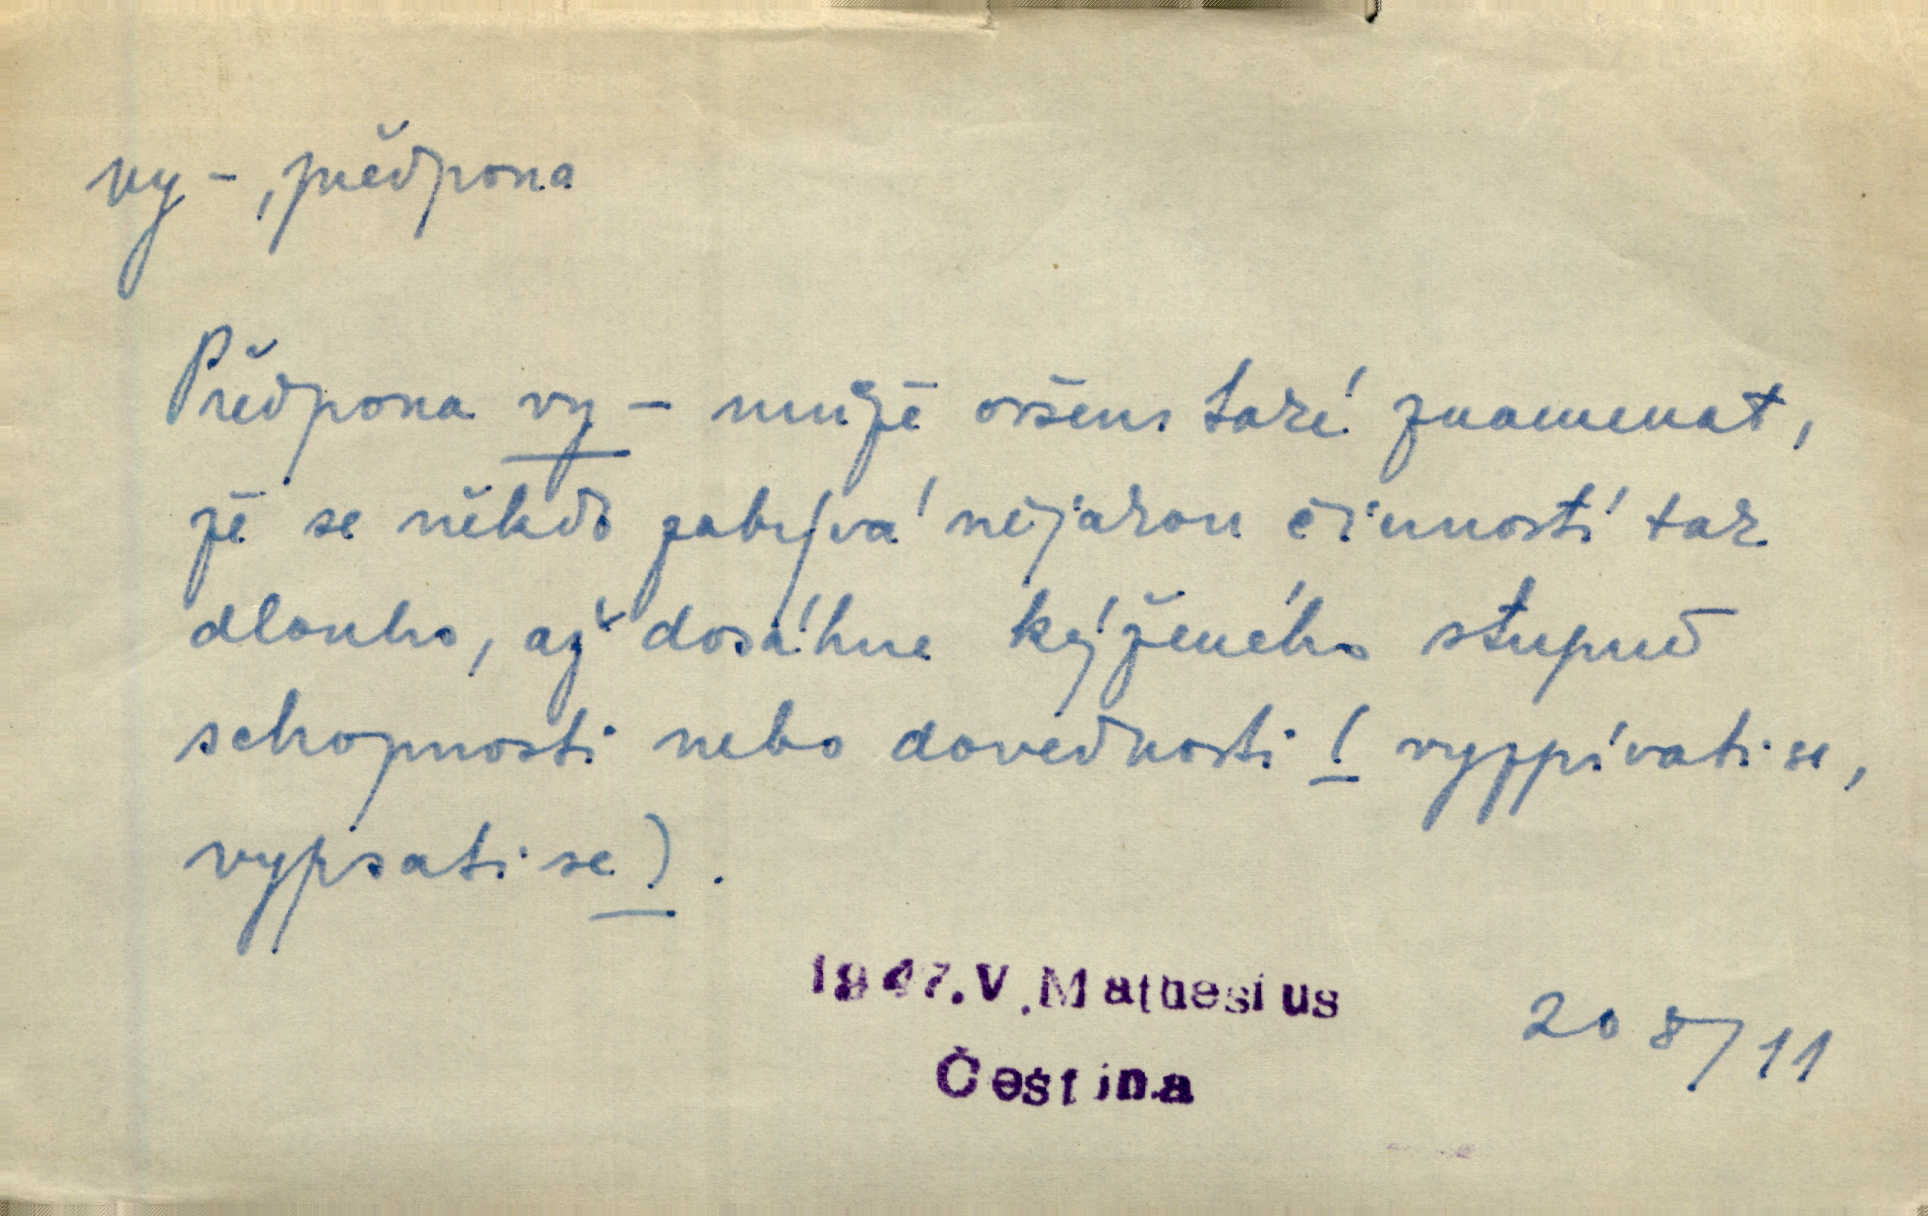 vy-, předpona
Předpona vy- může ovšem také znamenat,
že se někdo zabývá nějakou činností tak
dlouho, až dosáhne kýženého stupně
schopnosti nebo dovednosti (vyzpívati se,
vypsati se).
1947.V.Mathesius
208/11
Čeština